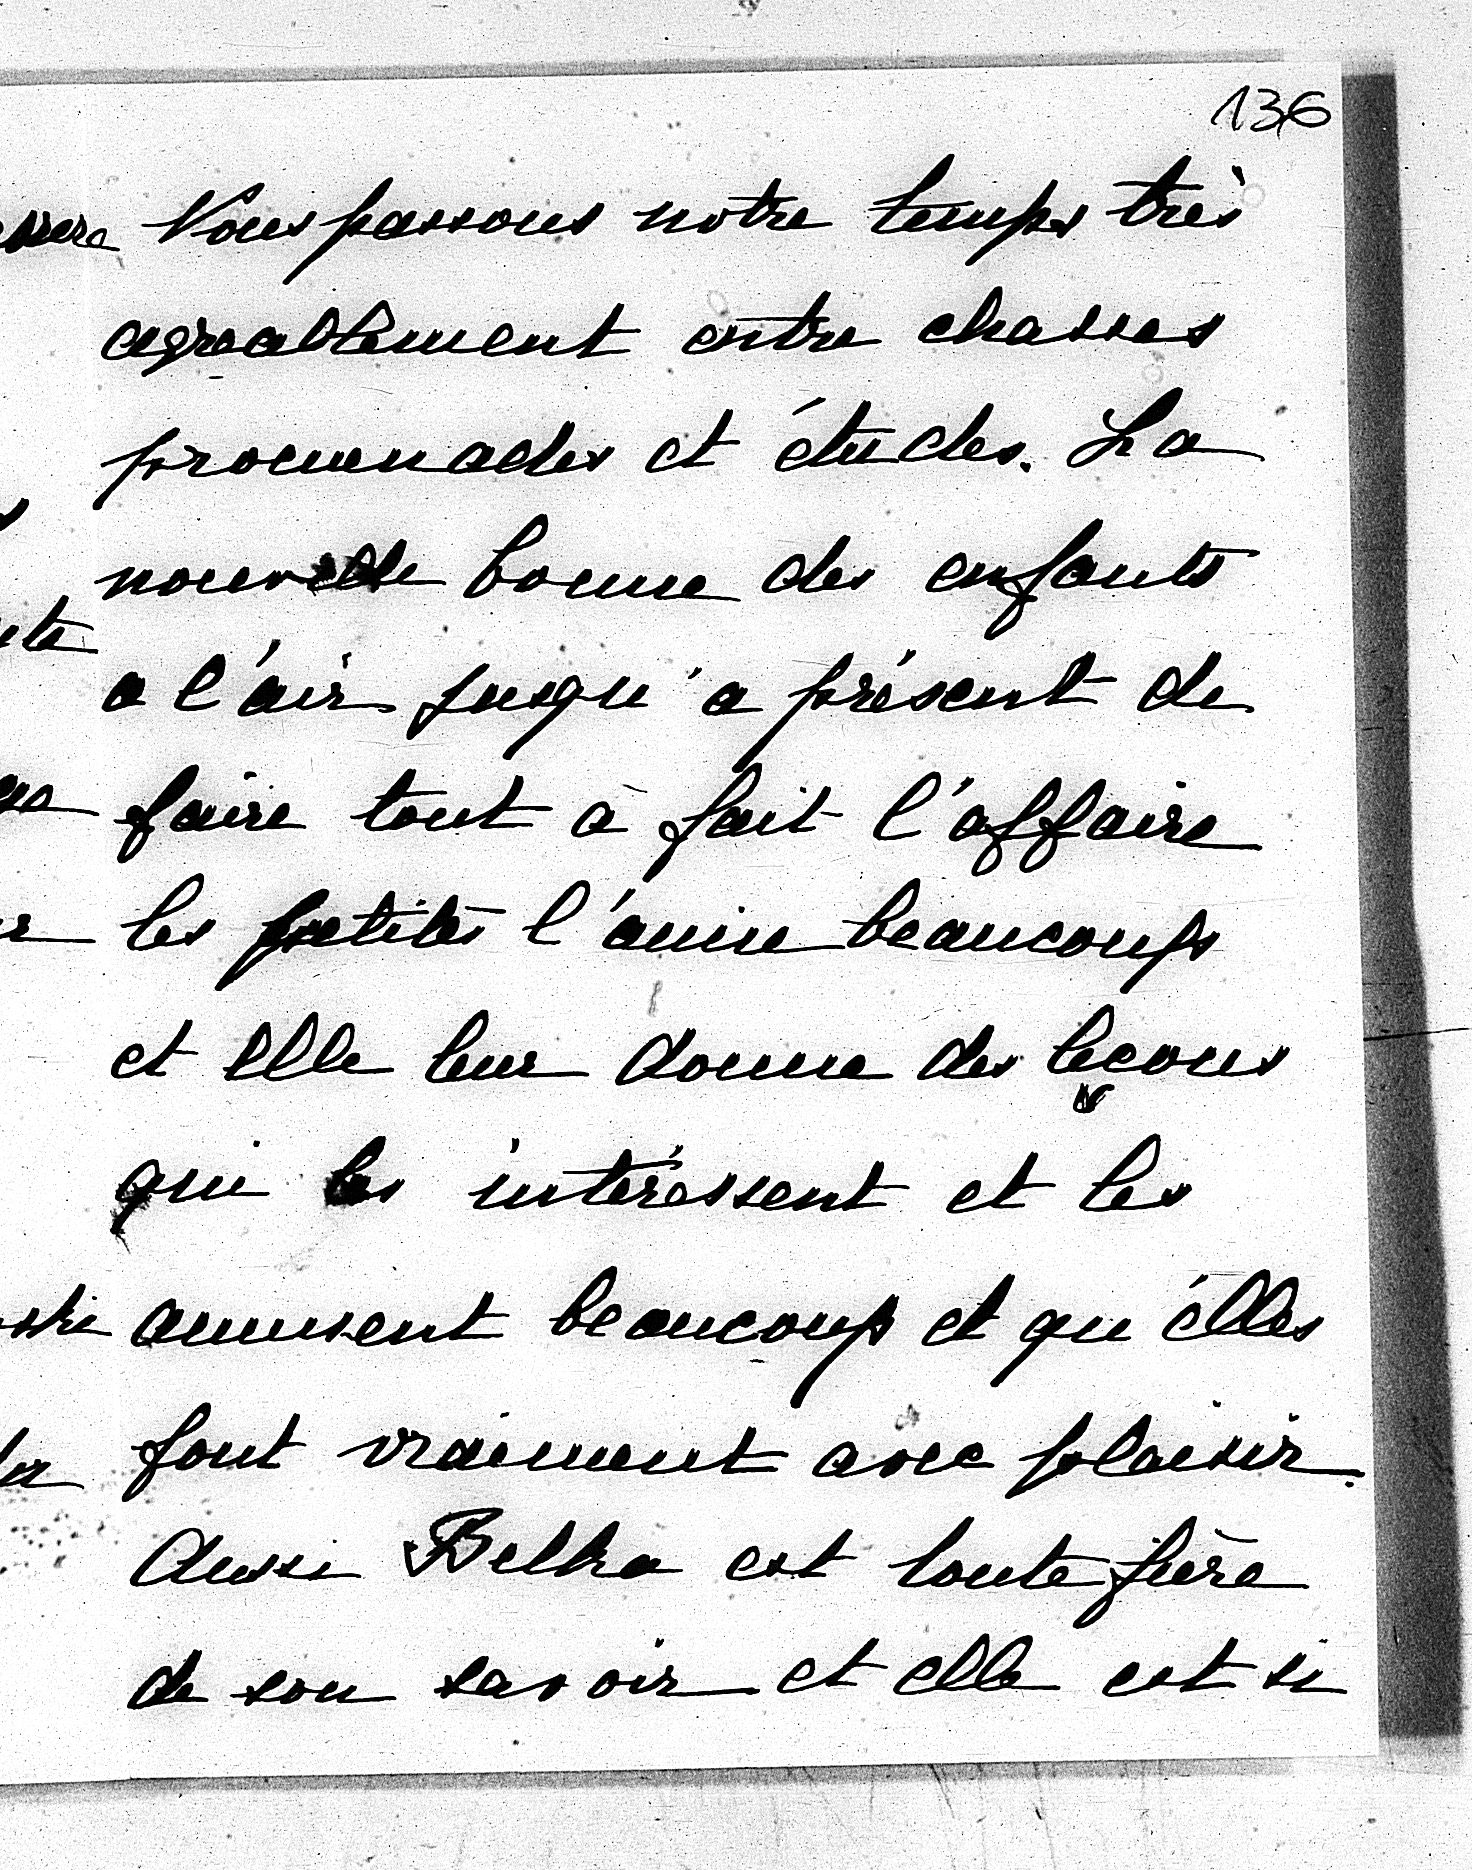 136
Nous passons notre temps très
agreablement entre chasses
promenades et études. La
nouvelle bonne des enfants
a l'air jusqu'a présent de
faire tout à fait l'affaire
les petites l'aime beaucoup
et elle leur donne des leçons
qui les intéressent et les
amusent beaucoup et qu'elles
font vraiment avec plaisir.
Aussi Belka est toute fière
de son savoir et elle est si